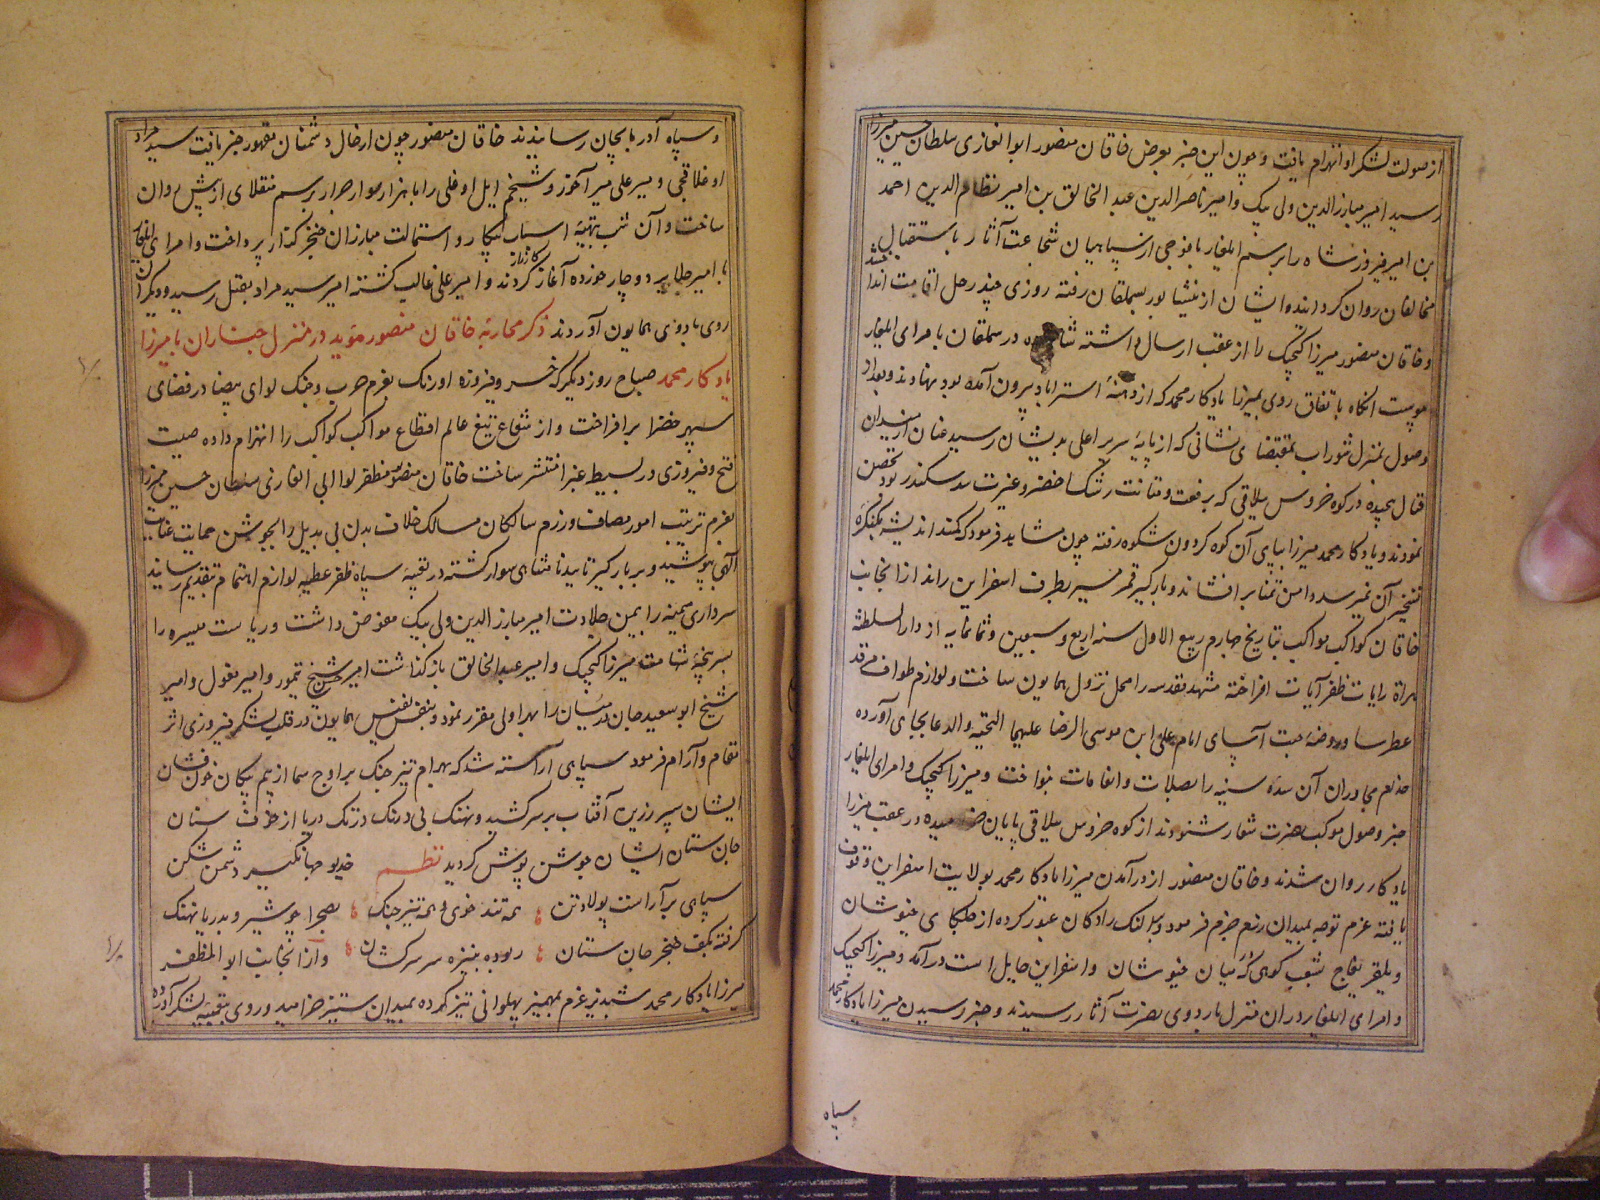 از صولت لشکر او انهزام یافت و چون این خبر بعرض خاقان منصور ابو الغازی سلطان حسین میرزا
رسید امیر مبارزالدین ولی بیک و امیر ناصرالدین عبد الخالق بن امیر نظام الدین احمد
بن امیر فیروز شاه را برسم ایلغار با فوجی از سپاهیان شجاعت آثار باستقبال
مخالفان روان کردانید و ایشان از نیشابور بسملقان رفته روزی چند رحل اقامت انداختند
و خاقان منصور میرزا کیچیک را از عقب ارسال داشته در سملقان بامرای ایلغار
پیوست انکاه باتفاق روی بمیرزا یادکار محمد که از استراباد بیرون آمده بود نهادند و بعد از
وصول بمنزل شوراب بمقتضای نشانی که از پایه سریر اعلی بدیشان رسید عنان از میدان
قتال پیچیده در کوه خروس ییلاقی که برفعت و متانت رشک خضر و غیرت سد سکندر بود تحصن
نمودند و یادکار محمد میرزا بپای آن کوه کردون شکوه رفته چون مشاهد فرمود که کمند اندیشه بکنکره
تسخیر آن نمیرسد دامن تمنا بر افشاند و بارکیر قمر مسیر بطرف اسفراین راند از انجانب
خاقان کواکب مواکب بتاریخ چهارم ربیع الاول سنه اربع و سبعین و ثمانمایه از دارالسلطنه
هراة رایات ظفر آیات افراخته مشهد مقدسه را محل نزول همایون ساخت و لوازم طواف مرقد
عطرسا و روضه جنت آسای امام علی ابن موسی الرضا علیهما التحیه والدعا بجای آورده
خدام مجاوران آن سده سنیه را بصلات و انعامات بنواخت و میرزا کیچیک و امرای ایلغار
خبر وصول موکب نصرت شعار شنودند از کوه خروس ییلاقی پایان در عقب میرزا
یادکار روان شدند و خاقان منصور از درآمدن میرزا یادکار محمد بولایت اسفراین وقوف
یافته عزم توجه بمیدان رزم جزم فرمود و بالنک رادکان عبور کرده از خبوشان
و بلغر یغاج شعب کوهی که میان خبوشان و اسفراین حایل است درآمد و میرزا کیچیک
و امرای ایلغار در ان منزل باردوی نصرت آثار رسیدند و خبر رسیدن میرزا یادکار محمد
سپاه
و سپاه آذربایجان رسانیدند خاقان منصور چون از حال دشمنان مقهور خبر یافت سید مراد
اوغلاقچی و میر علی میر آخور و شیخم ایل اوغلی را با هزار سوار جرار برسم منقلای از پیش روان
ساخت و آن شب بتهیه اسباب پیکار و استمالت مبارزان خنجر کذار پرداخت و امرای ایلغار
با امیر جلایر دو چار خورده آغاز کارزار کردند و امیر علی غالب کشته امیر سید مراد بقتل رسید و دیکران
روی باردوی همایون آوردند ذکر محاربه خاقان منصور موید در منزل جناران با میرزا
یادکار محمد صباح روز دیکر که خسرو فیروزه اورنک بعزم حرب و جنک لوای بیضا در فضای
سپهر خضرا برافراخت و از شعاع تیغ عالم اقطاع مواکب کواکب را انهزام داده صیت
فتح و فیروزی در بسیط غبرا منتشر ساخت خاقان منصور مظفر لوا ابی الغازی سلطان حسین میرزا
بعزم ترتیب امور مصاف و رزم سالکان مسالک خلاف بدن بی بدیل را بجوشن حمایت عنایت
آلهی بپوشید و بر بارکیر تایید نامتناهی سوار کشته در تعبیه سپاه ظفر عطیه لوازم اهتمام بتقدیم رسانید
سرداری میمنه را بیمن جلادت امیر مبارز الدین ولی بیک مفوض داشت و ریاست میسره را
بسرپنجه شهامت میرزا کیچیک و امیر عبدالخالق باز کذاشت امیر شیخ تیمور و امیر مغول و امیر
شیخ ابو سعید جان درمیان را بهراولی مقرر نمود و بنفس نفیس همایون در قلب لشکر فیروزی اثر
مقام و آرام فرمود سپاهی آراسته شد که بهرام تیز جنک بر اوج سما از بیم پیکان خون فشان
ایشان سپر زرین آفتاب بر سر کشید و نهنک بی درنک در تک دریا از خوف سنان
جان ستان ایشان جوشن پوش کردید نظم خدیو جهانکیر دشمن شکن
سپاهی بیآراست پولاد تن همه تند خوی و همه تیز جنک بصحرا چو شیر و بدریا نهنک
کرفته بکف خنجر جان ستان ربوده بنیزه سر سرکشان و از انجانب ابو المظفر
میرزا یادکار محمد شبدیز عزم بمهمیز پهلوانی تیز کرده بمیدان ستیز خرامید و روی بتعبیه لشکر آورده